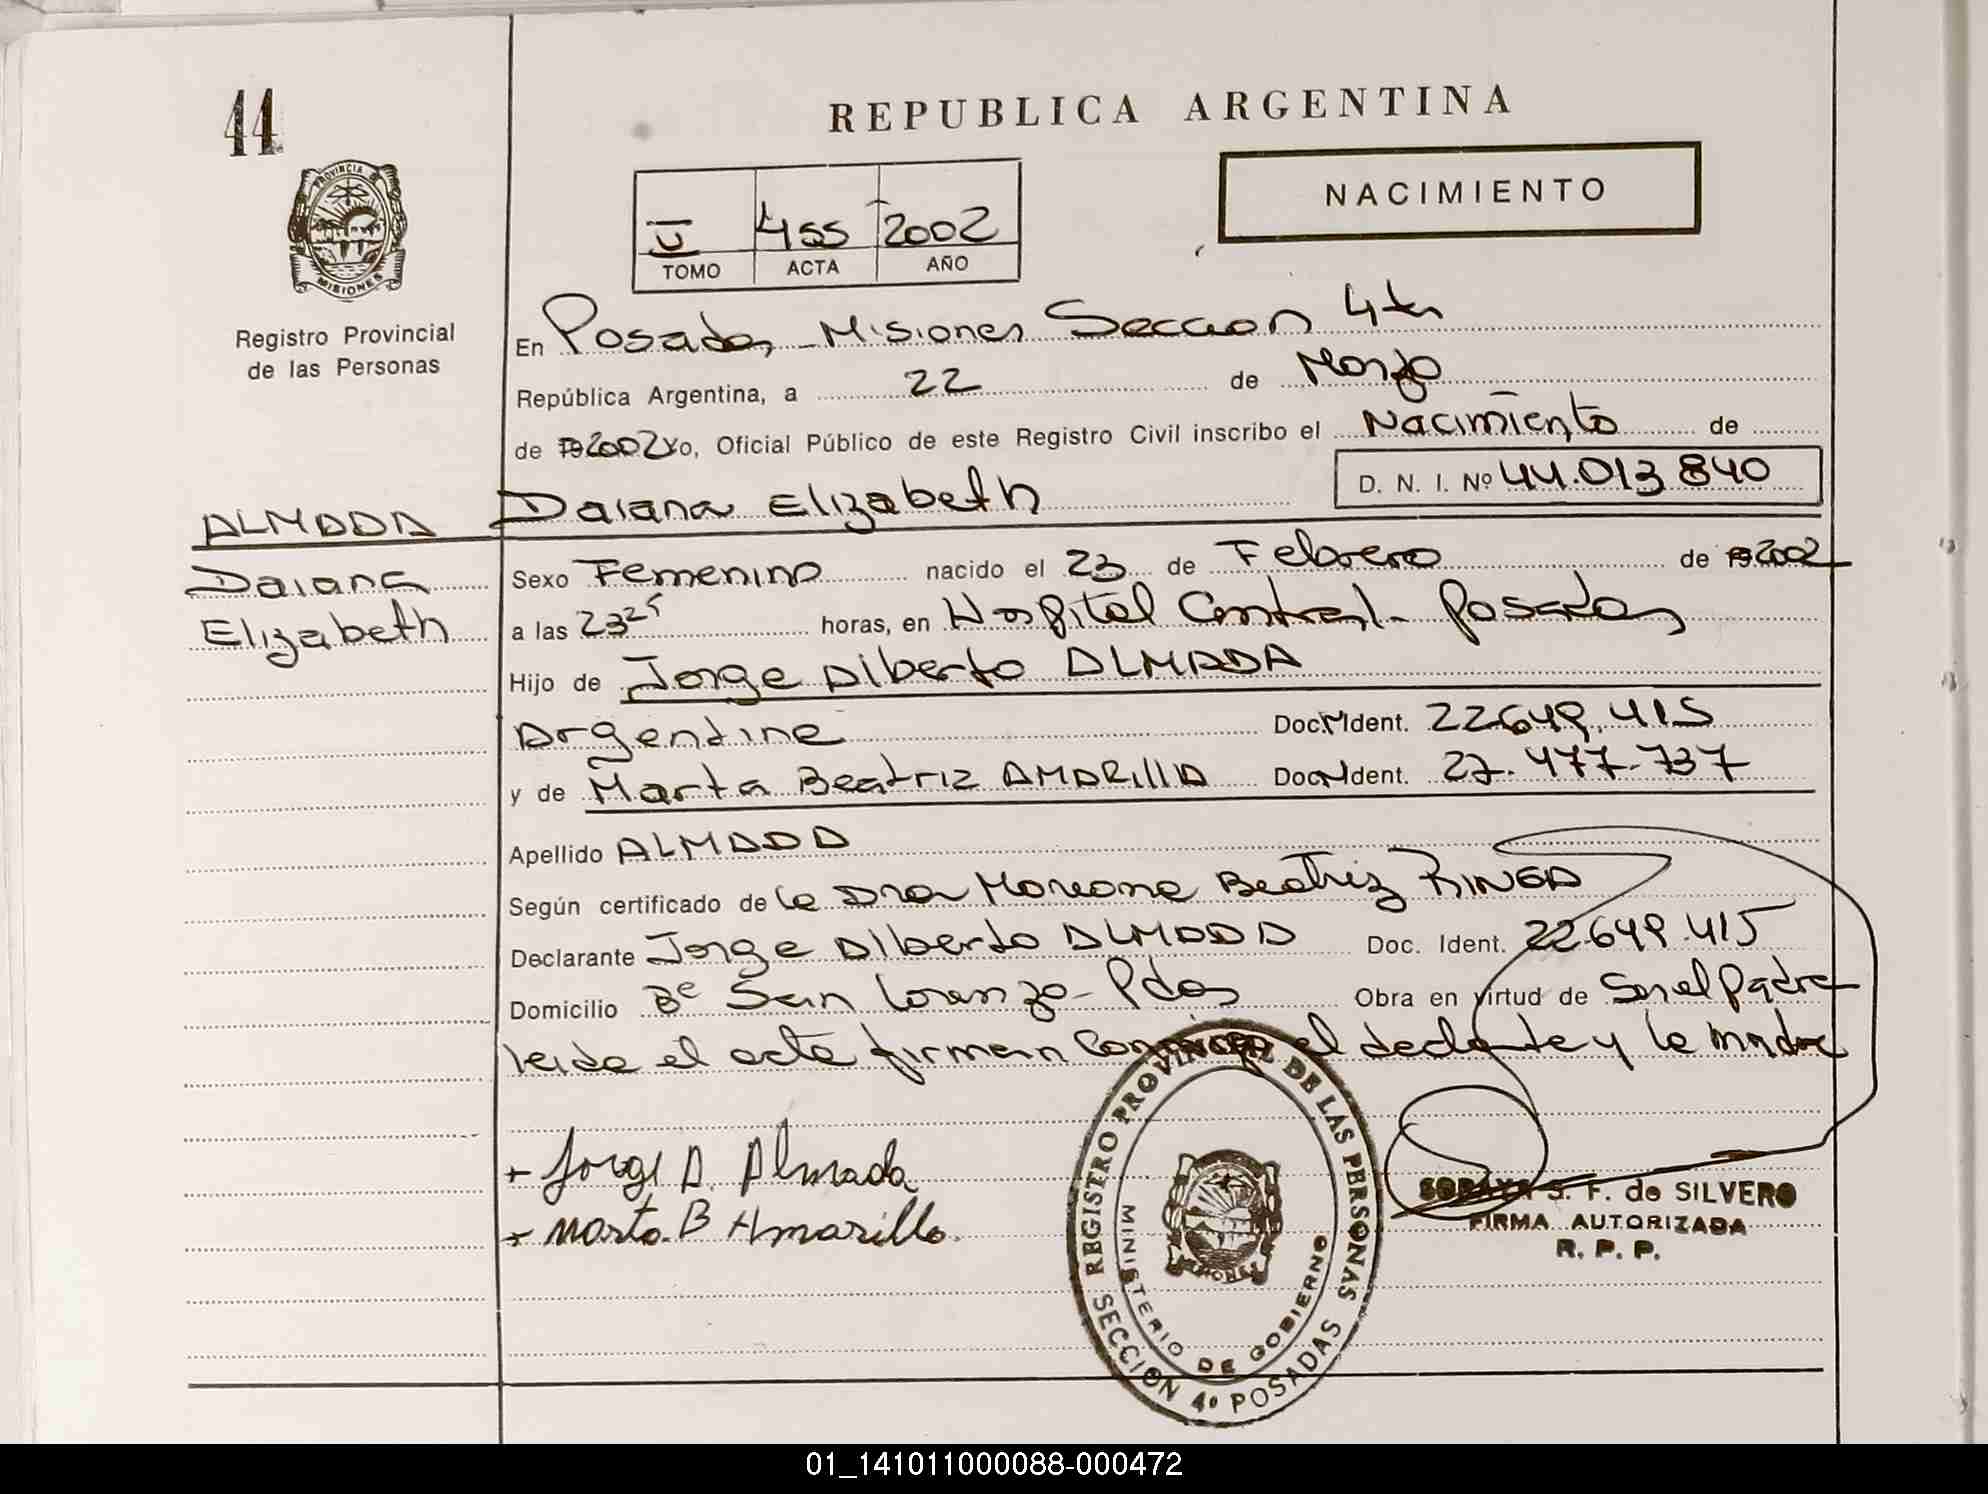 44
REPUBLICA ARGENTINA
NACIMIENTO
455 2002
TOMO ACTA AÑO
PROVINCIA D
MISIONES
Registro Provincial
de las Personas
En Posadas, Misiones Seccion 4ta
República Argentina, a 22 de Marzo
de 2002 Yo, Oficial Público de este Registro Civil inscribo el Nacimiento de
D. N. I. Nº 44.013 840
ALMADA Daiana Elizabeth
Daiana
Elizabeth
Sexo Femenino nacido el 23 de Febrero de 2002
a las 23 25 horas, en Hospital Central - Posadas
Hijo de Jorge Alberto ALMADA
Argentina Doc. Ident. 22.649.415
y de Marta Beatriz AMARILLA Doc. Ident. 27.477.737
Apellido ALMADA
Según certificado de la Dra Beatriz
Declarante Jorge Alberto ALMADA Doc. Ident. 22.649.415
Domicilio Bº San Lorenzo - Pdas Obra en virtud de Ser el padre
leida el acta firman el y la madre
+ Jorge A. Almada
+ Marta. B Amarillo.
REGISTRO PROVINCIAL DE LAS PERSONAS
MINISTERIO DE GOBIERNO
MISIONES
SECCION 4º POSADAS
SORAYA S. F. de SILVERO
FIRMA AUTORIZADA
R. P. P.
01_141011000088-000472